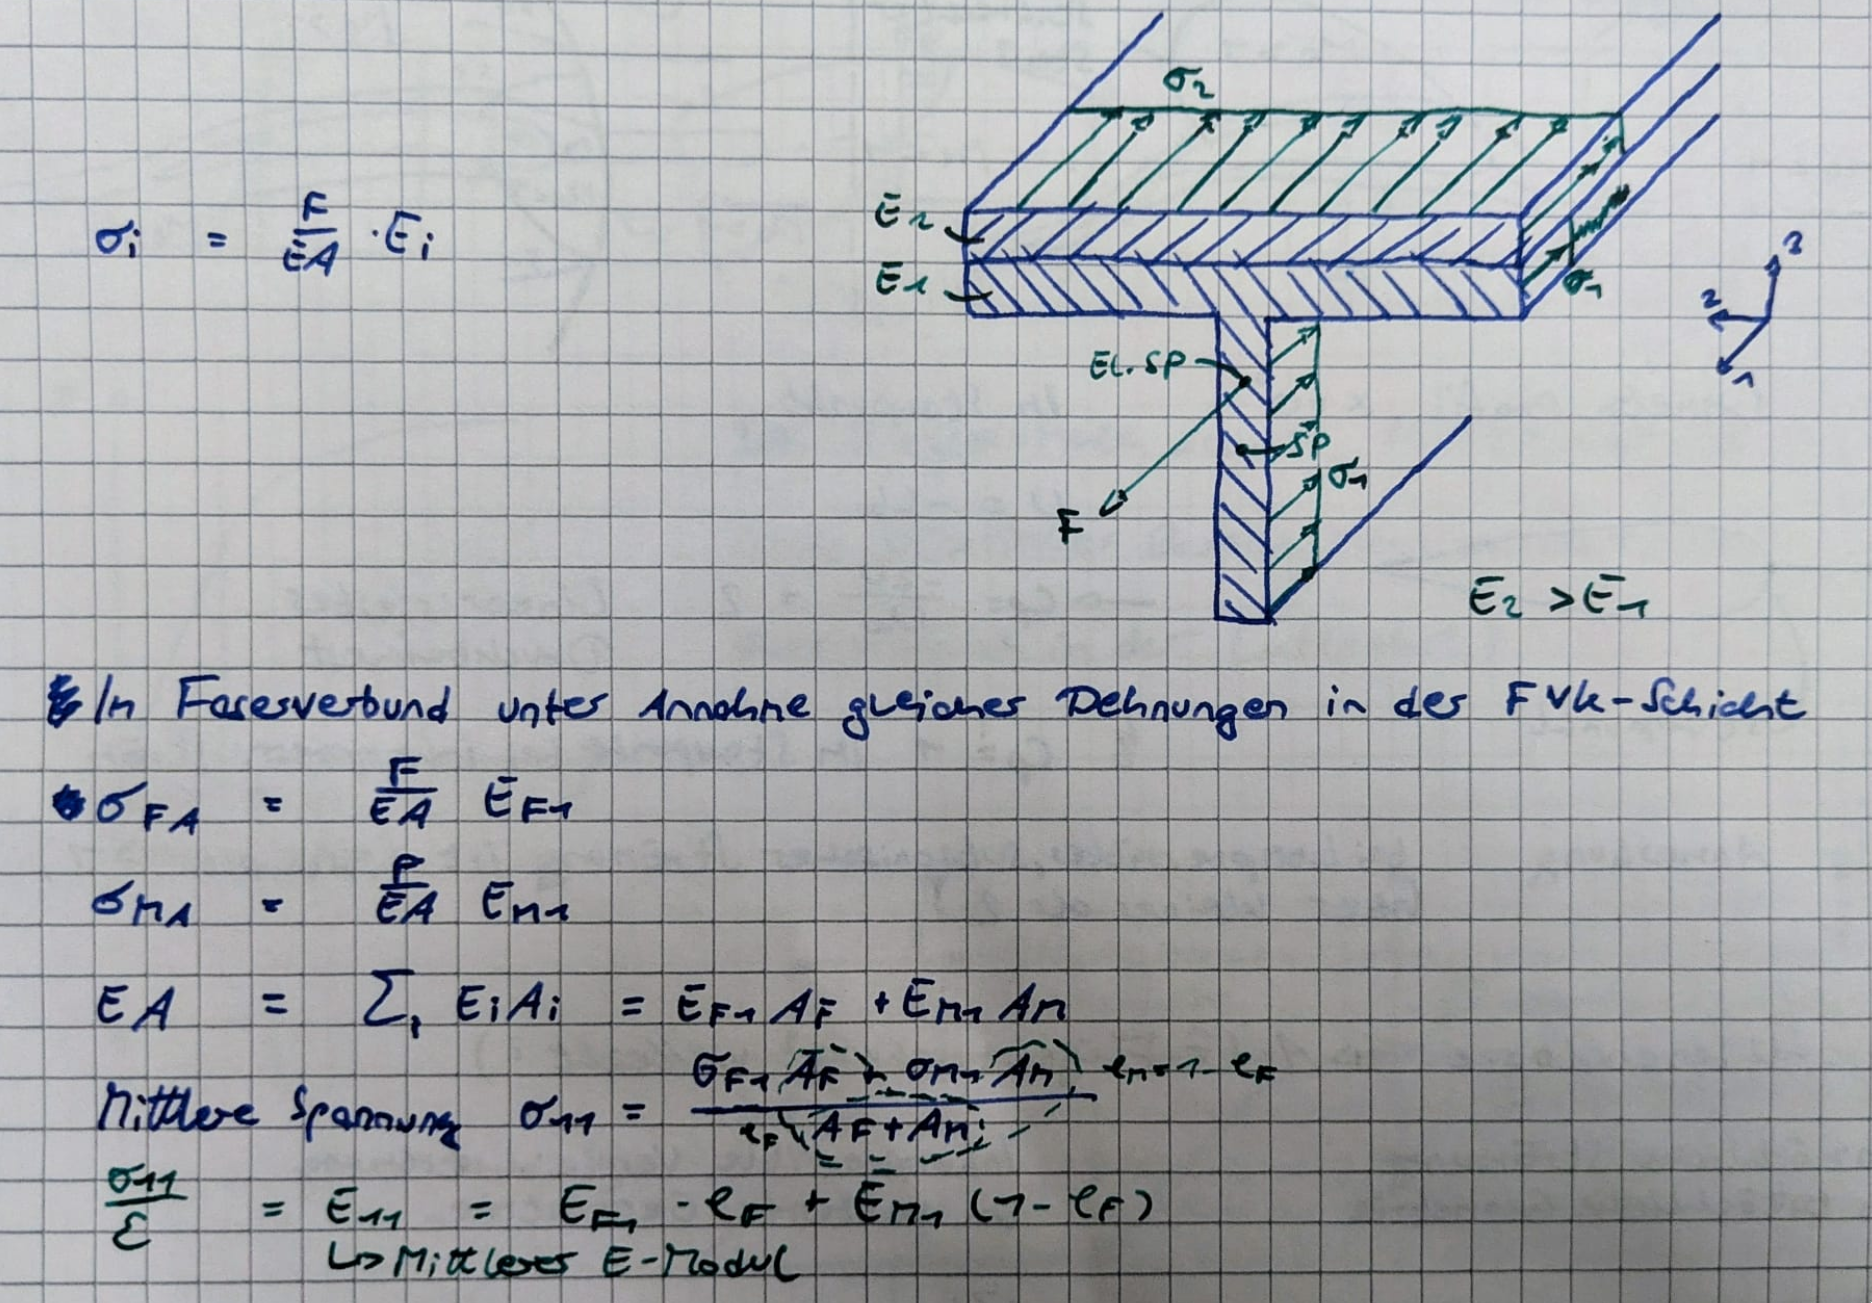 σ2
E2
σi = F/EA · Ei
E1
σ1
3
2
1
EL. SP
SP
σ1
F
E2 > E1
In Faserverbund unter Annahme gleicher Dehnungen in der FVK-Schicht
σFA = F/EA EF1
σMA = F/EA EM1
EA = Σi EiAi = EF1 AF + EM1 AM
Mittlere Spannung σ11 = (σF1 AF + σM1 AM) / (AF + AM) φM = 1 - φF
φF
σ11/ε = E11 = EF1 · φF + EM1 (1 - φF)
↳ Mittlerer E-Modul